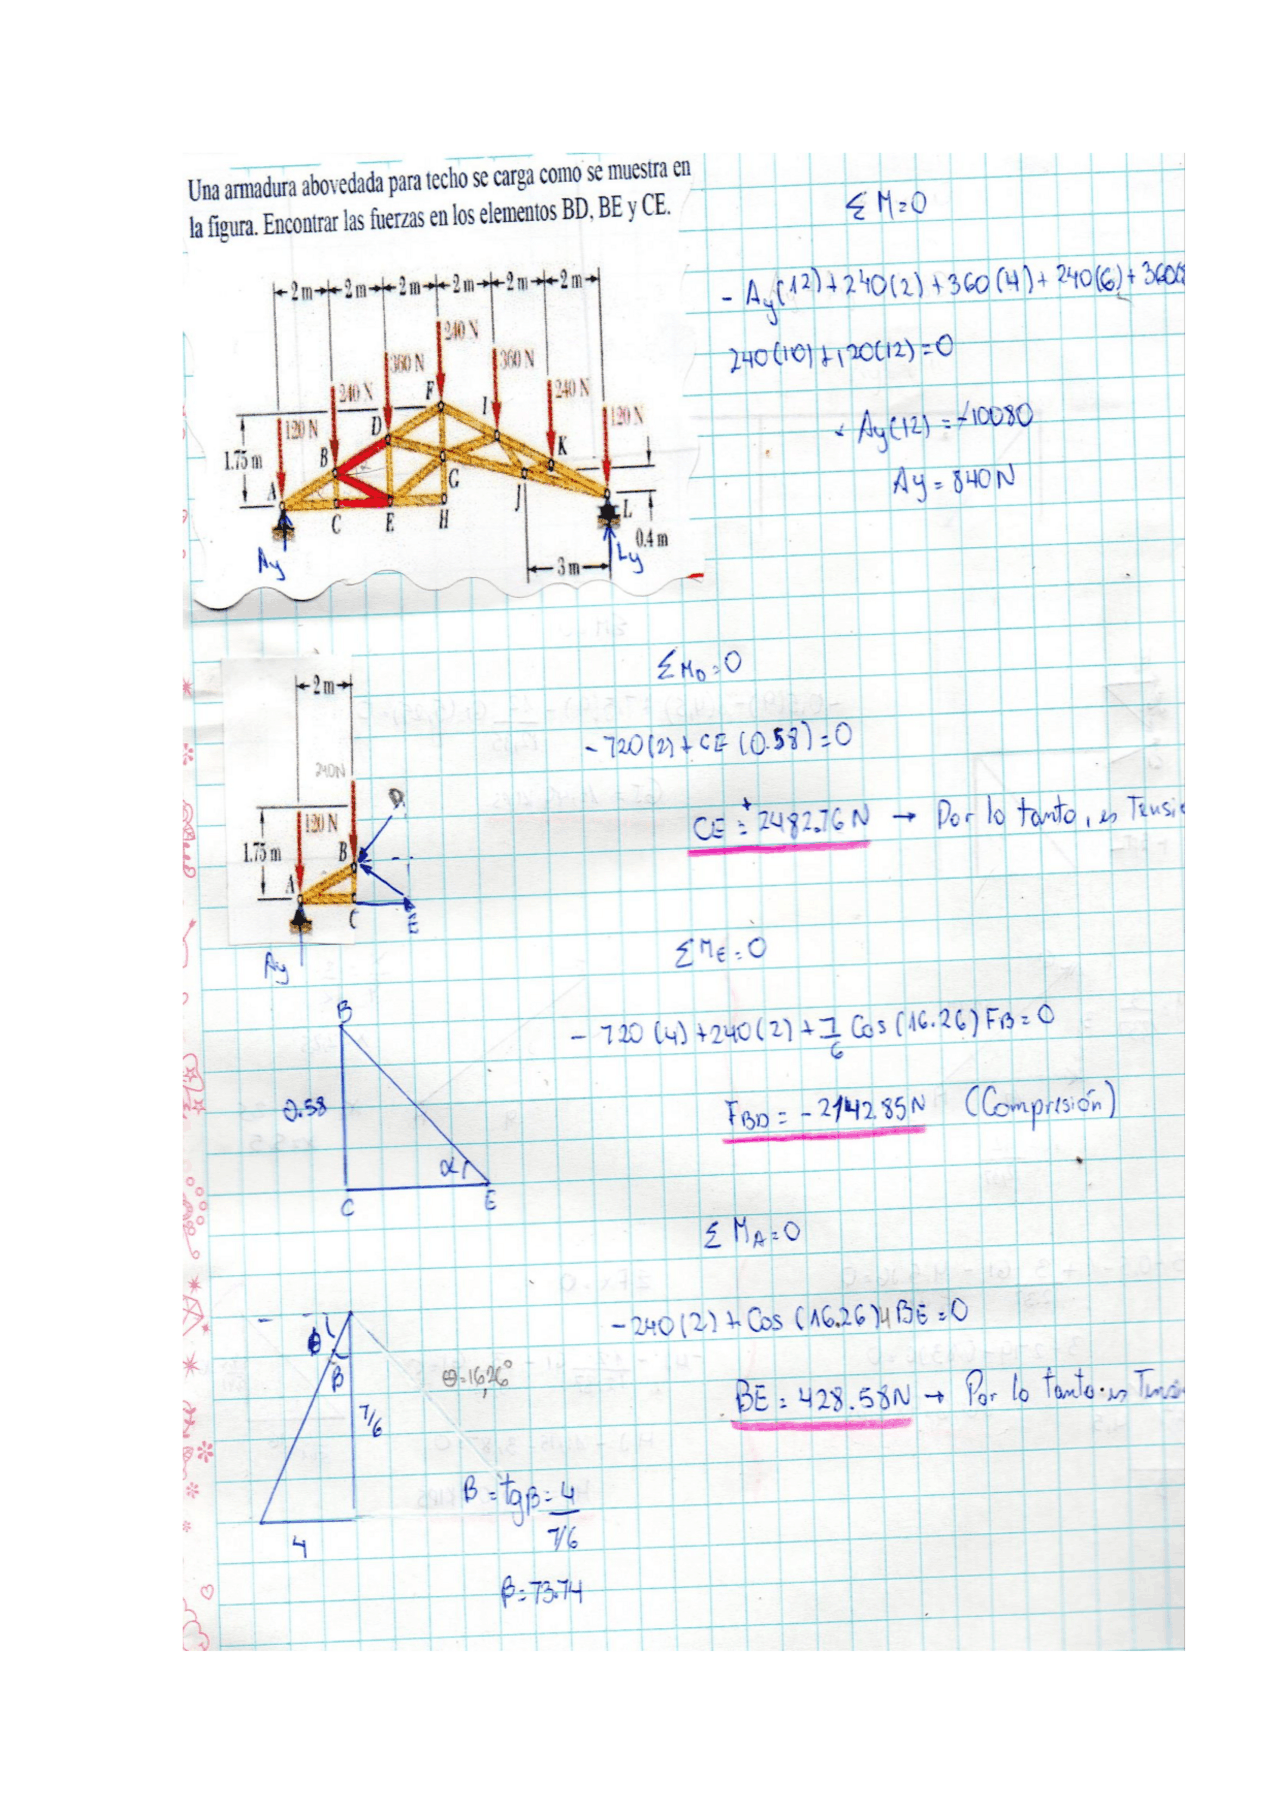 Una armadura abovedada para techo se carga como se muestra en
la figura. Encontrar las fuerzas en los elementos BD, BE y CE.
2 m 2 m 2 m 2 m 2 m 2 m
240 N
360 N 360 N
240 N 240 N
120 N 120 N
1.75 m
A B C D E F G H I J K L
0.4 m
3 m
Ay Ly
Σ M=0
- Ay(12)+240(2)+360(4)+240(6)+360(8
240(10)+120(12)=0
- Ay(12) = -10080
Ay = 840N
2 m
240N
120 N
1.75 m
A B C D E
Ay
Σ MD=0
-720(2)+CE(0.58)=0
CE = +2482.76N → Por lo tanto, es Tensió
Σ ME=0
- 720(4)+240(2)+7/6 Cos(16.26)FB=0
FBD = -2142.85N (Compresión)
B
0.58
α
C E
Σ MA=0
-240(2)+Cos(16.26)4BE=0
BE = 428.58N → Por lo tanto es Tensi
θ
β
θ=16,26°
7/6
4
B = tgβ = 4
7/6
β=73.74